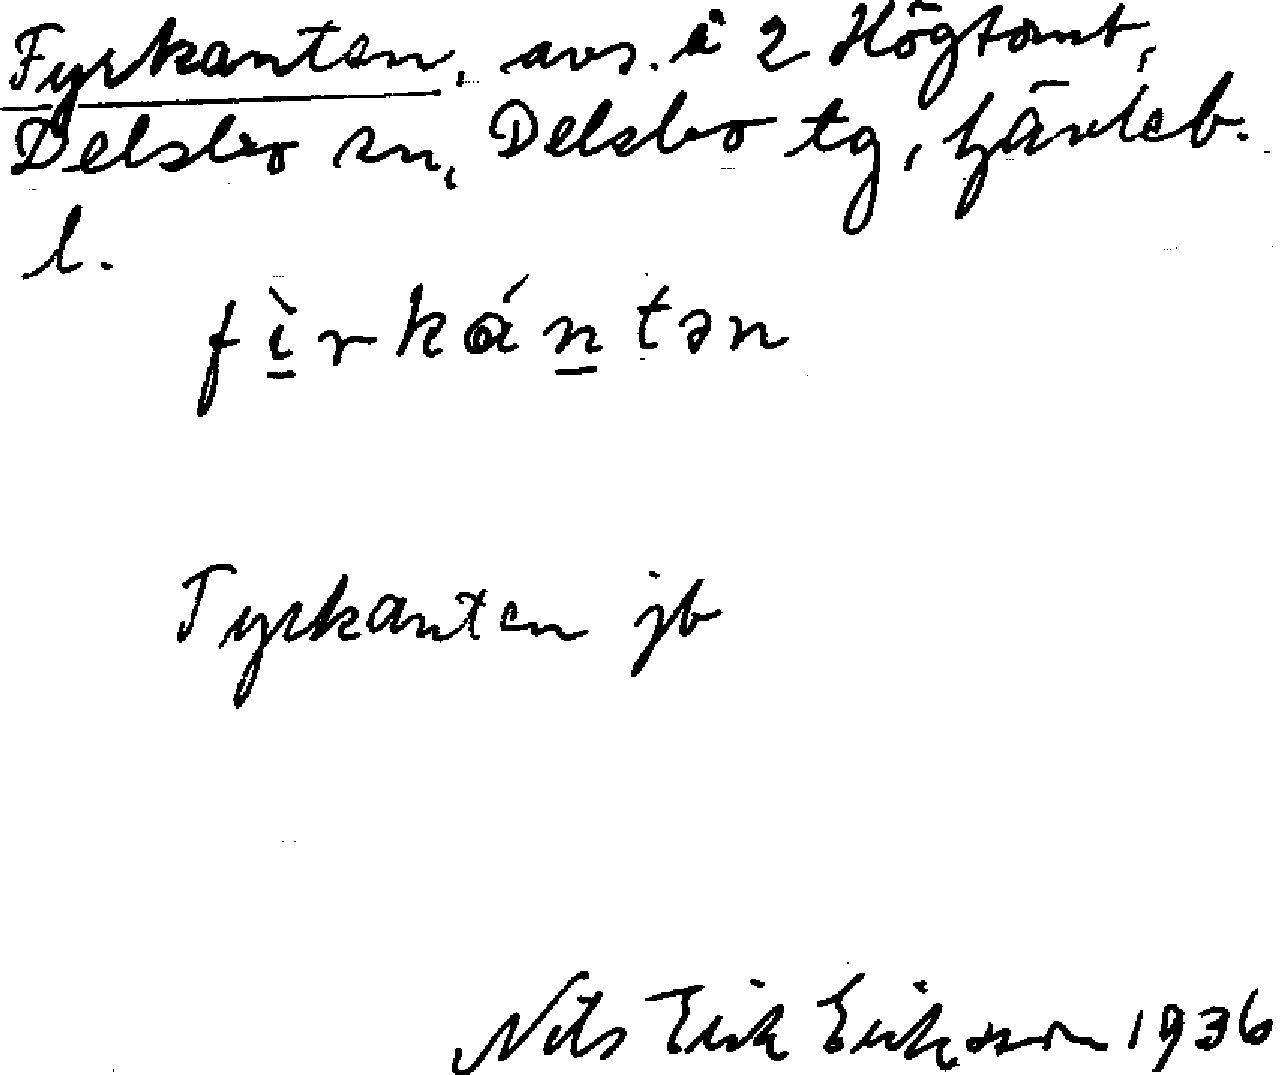 Fyrkanten, avs. i 2 Högtomt,
Delsbo sn, Delsbo tg, Gävleb.
l.
fì̱rkɑ́ṉtən
Fyrkanten jb
Nils Erik Eriksson 1936